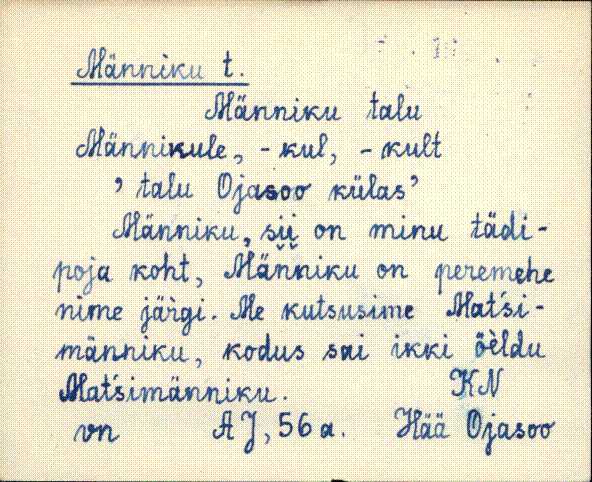 Männiku t.
Männiku talu
Männikule, -kul, -kult
’talu Ojasoo külas’
Männiku, sii on minu tädi-
poja koht, Männiku on peremehe
nime järgi. Me kutsusime Mat́si-
männiku, kodus sai ikki öèldu
Mat́simänniku. KN
vn AJ, 56 a. Hää Ojasoo